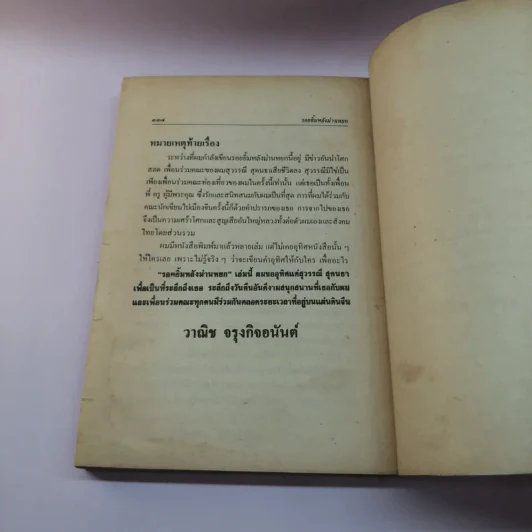 ๓๓๘ รอยยิ้มหลังม่านหยก
หมายเหตุท้ายเรื่อง
ระหว่างที่ผมกำลังเขียนรอยยิ้มหลังม่านหยกนี้อยู่ มีข่าวอันน่าโศก
สลด เพื่อนร่วมคณะของผมสุวรรณี สุคนธาเสียชีวิตลง สุวรรณีมิใช่เป็น
เพียงเพื่อนร่วมคณะท่องเที่ยวของผมในครั้งนี้เท่านั้น แต่เธอเป็นทั้งเพื่อน
พี่ ครู ผู้มีพระคุณ ซึ่งรักและสนิทสนมกับผมเป็นที่สุด การที่ผมได้ร่วมกับ
คณะนักเขียนไปเมืองจีนครั้งนี้ก็ด้วยคำปรารภของเธอ การจากไปของเธอ
จึงเป็นความเศร้าโศกและสูญเสียอันใหญ่หลวงทั้งต่อตัวผมเองและสังคม
ไทยโดยส่วนรวม
ผมมีหนังสือพิมพ์มาแล้วหลายเล่ม แต่ไม่เคยอุทิศหนังสือนั้น ๆ
ให้ใครเลย เพราะไม่รู้จริง ๆ ว่าจะเขียนคำอุทิศให้กับใคร เพื่ออะไร
“รอยยิ้มหลังม่านหยก” เล่มนี้ ผมขออุทิศแด่สุวรรณี สุคนธา
เพื่อเป็นที่ระลึกถึงเธอ ระลึกถึงวันคืนอันดีงามสนุกสนานที่เธอกับผม
และเพื่อนร่วมคณะทุกคนมีร่วมกันตลอดระยะเวลาที่อยู่บนแผ่นดินจีน
วาณิช จรุงกิจอนันต์